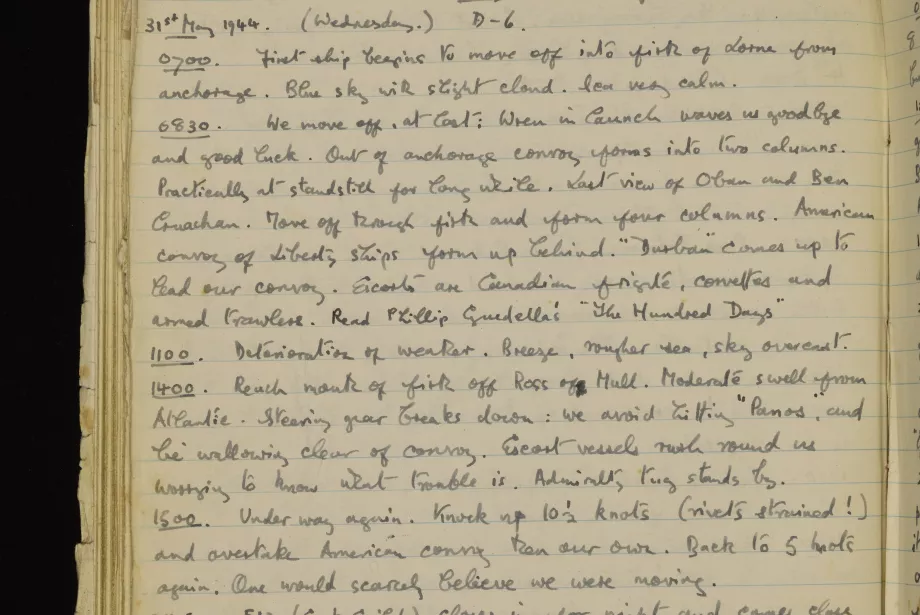 31st May 1944. (Wednesday.) D-6.
0700. First ship begins to move off into firth of Lorne from
anchorage. Blue sky with slight cloud. Sea very calm.
0830. We move off, at last: Wren in launch waves us goodbye
and good luck. Out of anchorage convoy forms into two columns.
Practically at standstill for long while. Last view of Oban and Ben
Cruachan. Move off through firth and form four columns. American
convoy of Liberty ships form up behind. "Durban" comes up to
lead our convoy. Escorts are Canadian frigate, corvettes and
armed trawlers. Read Phillip Guedella's "The Hundred Days"
1100. Deterioration of weather. Breeze, rougher sea, sky overcast.
1400. Reach mouth of firth off Ross of Mull. Moderate swell from
Atlantic. Steering gear breaks down: we avoid hitting "Panos", and
lie wallowing clear of convoy. Escort vessels rush round us
worrying to know what trouble is. Admiralty tug stands by.
1500. Under way again. Knock up 10½ knots (rivets strained!)
and overtake American convoy then our own. Back to 5 knots
again. One would scarcely believe we were moving.